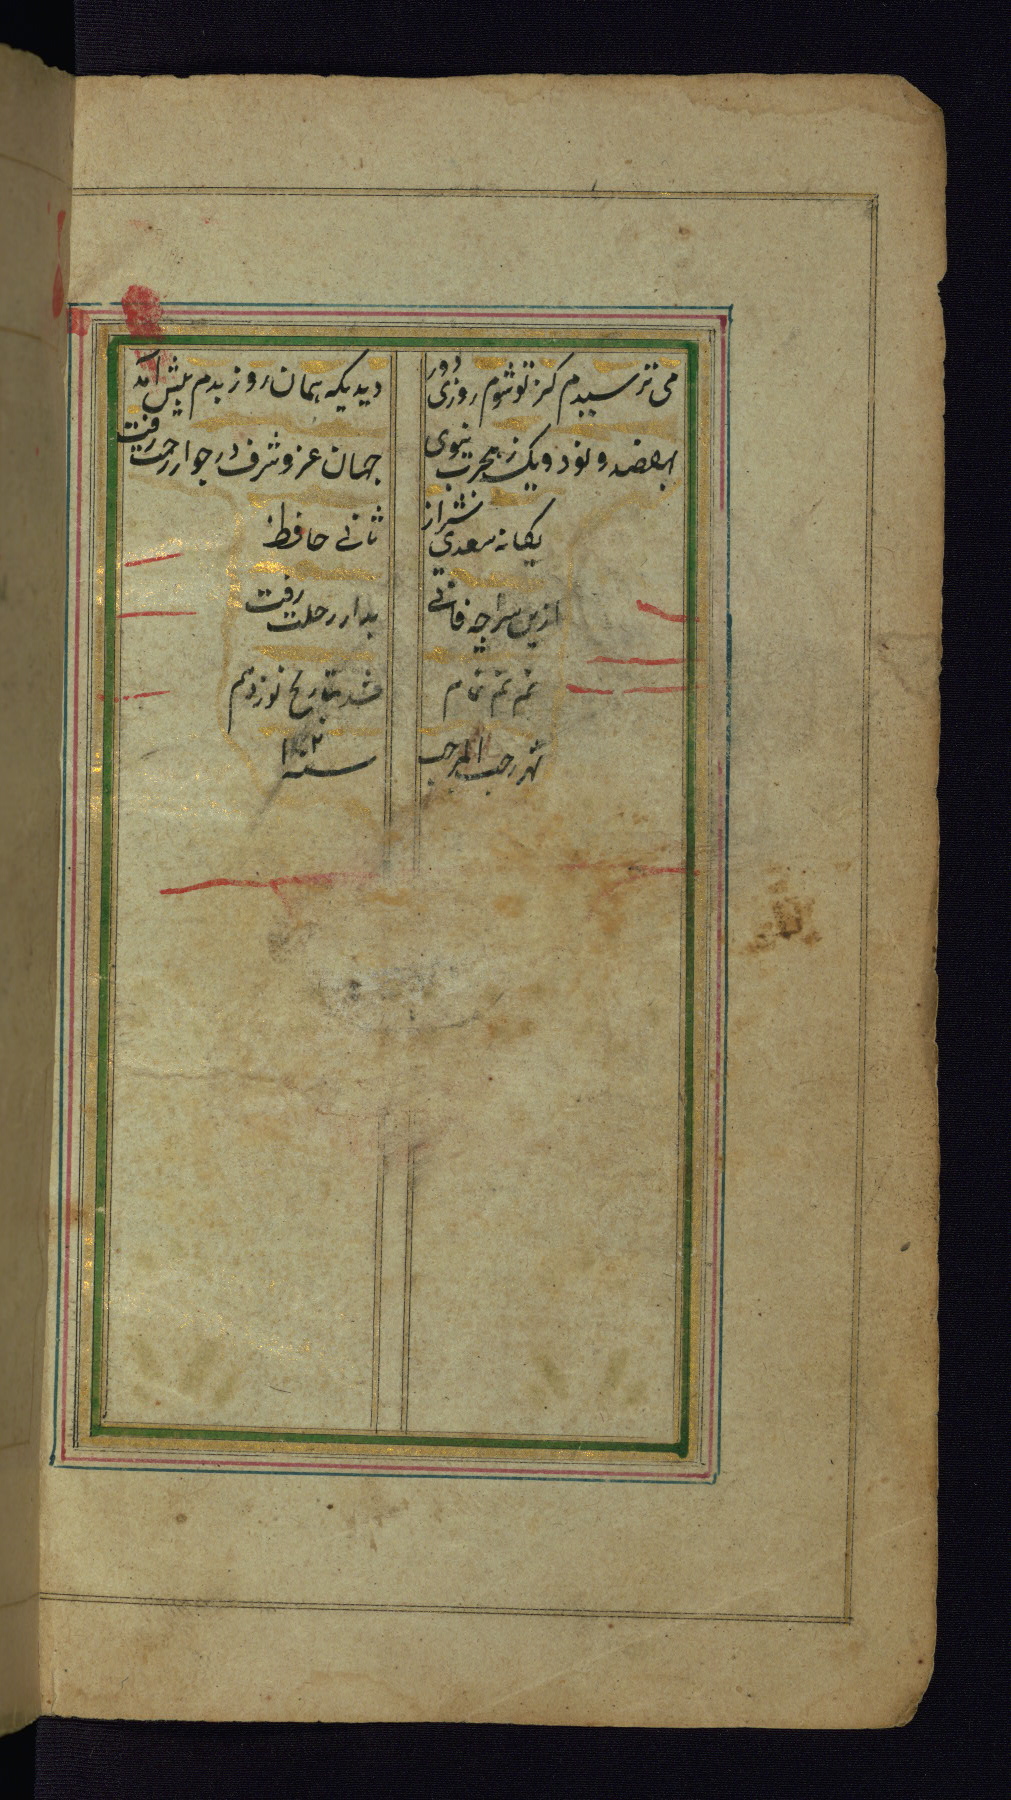 می ترسیدم کز تو شوم روزی دور
دیدیکه همان روز بدم پیش آمد
بهفصد و نود و یک ز هجرت نبوی
جهان عز و شرف در جوار رحمت رفت
یکانه سعدی شیراز
ثانی حافظ
ازین سراچه فانی
بدار رحلت رفت
تم تم تمام
شد بتاریخ نوزدهم
شهر رجب المرجب
سنه ۱۲۰۲